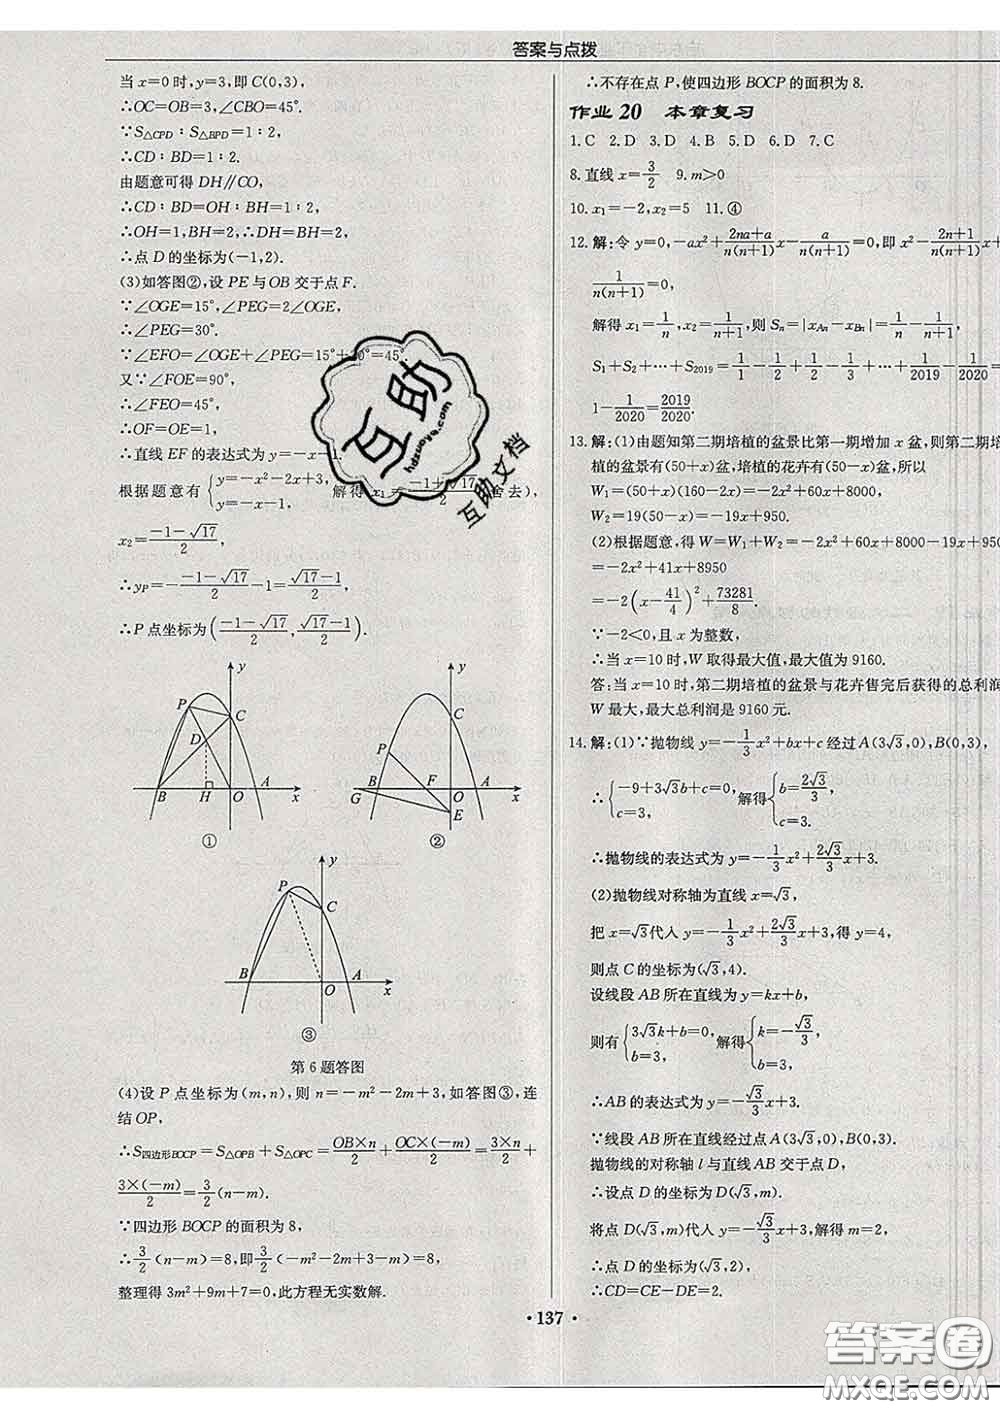 答案与点拨
当 x=0 时, y=3, 即 C(0,3),
∴OC=OB=3, ∠CBO=45°.
∵S△CPD：S△BPD=1：2,
∴CD：BD=1：2.
由题意可得 DH∥CO,
∴CD：BD=OH：BH=1：2,
∴OH=1, BH=2, ∴DH=BH=2,
∴点 D 的坐标为(-1,2).
(3)如答图②, 设 PE 与 OB 交于点 F.
∵∠OGE=15°, ∠PEG=2∠OGE,
∴∠PEG=30°.
∵∠EFO=∠OGE+∠PEG=15°+30°=45°,
又∵∠FOE=90°,
∴∠FEO=45°,
∴OF=OE=1,
∴直线 EF 的表达式为 y=-x-1.
根据题意有 {y=-x²-2x+3, y=-x-1, 解得 x₁=(-1+√17)/2 (舍去),
x₂=(-1-√17)/2,
∴yP=-(-1-√17)/2-1=(√17-1)/2,
∴P 点坐标为((-1-√17)/2, (√17-1)/2).
P y C D B H O A x
①
P y C B G F O A E x
②
P y C B O A x
③
第 6 题答图
(4)设 P 点坐标为(m,n), 则 n=-m²-2m+3, 如答图③, 连
结 OP,
∴S四边形BOCP=S△OPB+S△OPC=(OB×n)/2+(OC×(-m))/2=(3×n)/2+
(3×(-m))/2=3/2(n-m).
∵四边形 BOCP 的面积为 8,
∴3/2(n-m)=8, 即3/2(-m²-2m+3-m)=8,
整理得 3m²+9m+7=0, 此方程无实数解.
∴不存在点 P, 使四边形 BOCP 的面积为 8.
作业 20 本章复习
1.C 2.D 3.D 4.B 5.D 6.D 7.C
8.直线 x=3/2 9.m>0
10.x₁=-2, x₂=5 11.④
12.解:令 y=0, -ax²+(2na+a)/(n(n+1))x-a/(n(n+1))=0, 即 x²-(2n+1)/(n(n+1))x+
1/(n(n+1))=0,
解得 x₁=1/n, x₂=1/(n+1), 则 Sn=|xAn-xBn|=1/n-1/(n+1),
S₁+S₂+…+S₂₀₁₉=1/1-1/2+1/2-1/3+…+1/2019-1/2020=
1-1/2020=2019/2020.
13.解:(1)由题知第二期培植的盆景比第一期增加 x 盆, 则第二期培
植的盆景有(50+x)盆, 培植的花卉有(50-x)盆, 所以
W₁=(50+x)(160-2x)=-2x²+60x+8000,
W₂=19(50-x)=-19x+950.
(2)根据题意, 得 W=W₁+W₂=-2x²+60x+8000-19x+950
=-2x²+41x+8950
=-2(x-41/4)²+73281/8.
∵-2<0, 且 x 为整数,
∴当 x=10 时, W 取得最大值, 最大值为 9160.
答:当 x=10 时, 第二期培植的盆景与花卉售完后获得的总利润
W 最大, 最大总利润是 9160 元.
14.解:(1)∵抛物线 y=-1/3x²+bx+c 经过 A(3√3,0), B(0,3),
∴{-9+3√3b+c=0, c=3, 解得{b=2√3/3, c=3,
∴抛物线的表达式为 y=-1/3x²+2√3/3x+3.
(2)抛物线对称轴为直线 x=√3,
把 x=√3代入 y=-1/3x²+2√3/3x+3, 得 y=4,
则点 C 的坐标为(√3,4).
设线段 AB 所在直线为 y=kx+b,
则有{3√3k+b=0, b=3, 解得{k=-√3/3, b=3,
∴AB 的表达式为 y=-√3/3x+3.
∵线段 AB 所在直线经过点 A(3√3,0), B(0,3).
抛物线的对称轴 l 与直线 AB 交于点 D,
∴设点 D 的坐标为 D(√3,m).
将点 D(√3,m)代入 y=-√3/3x+3, 解得 m=2,
∴点 D 的坐标为(√3,2),
∴CD=CE-DE=2.
·137·
互助
hdzuoye.com
互助文档
答案圈
MXQE.COM